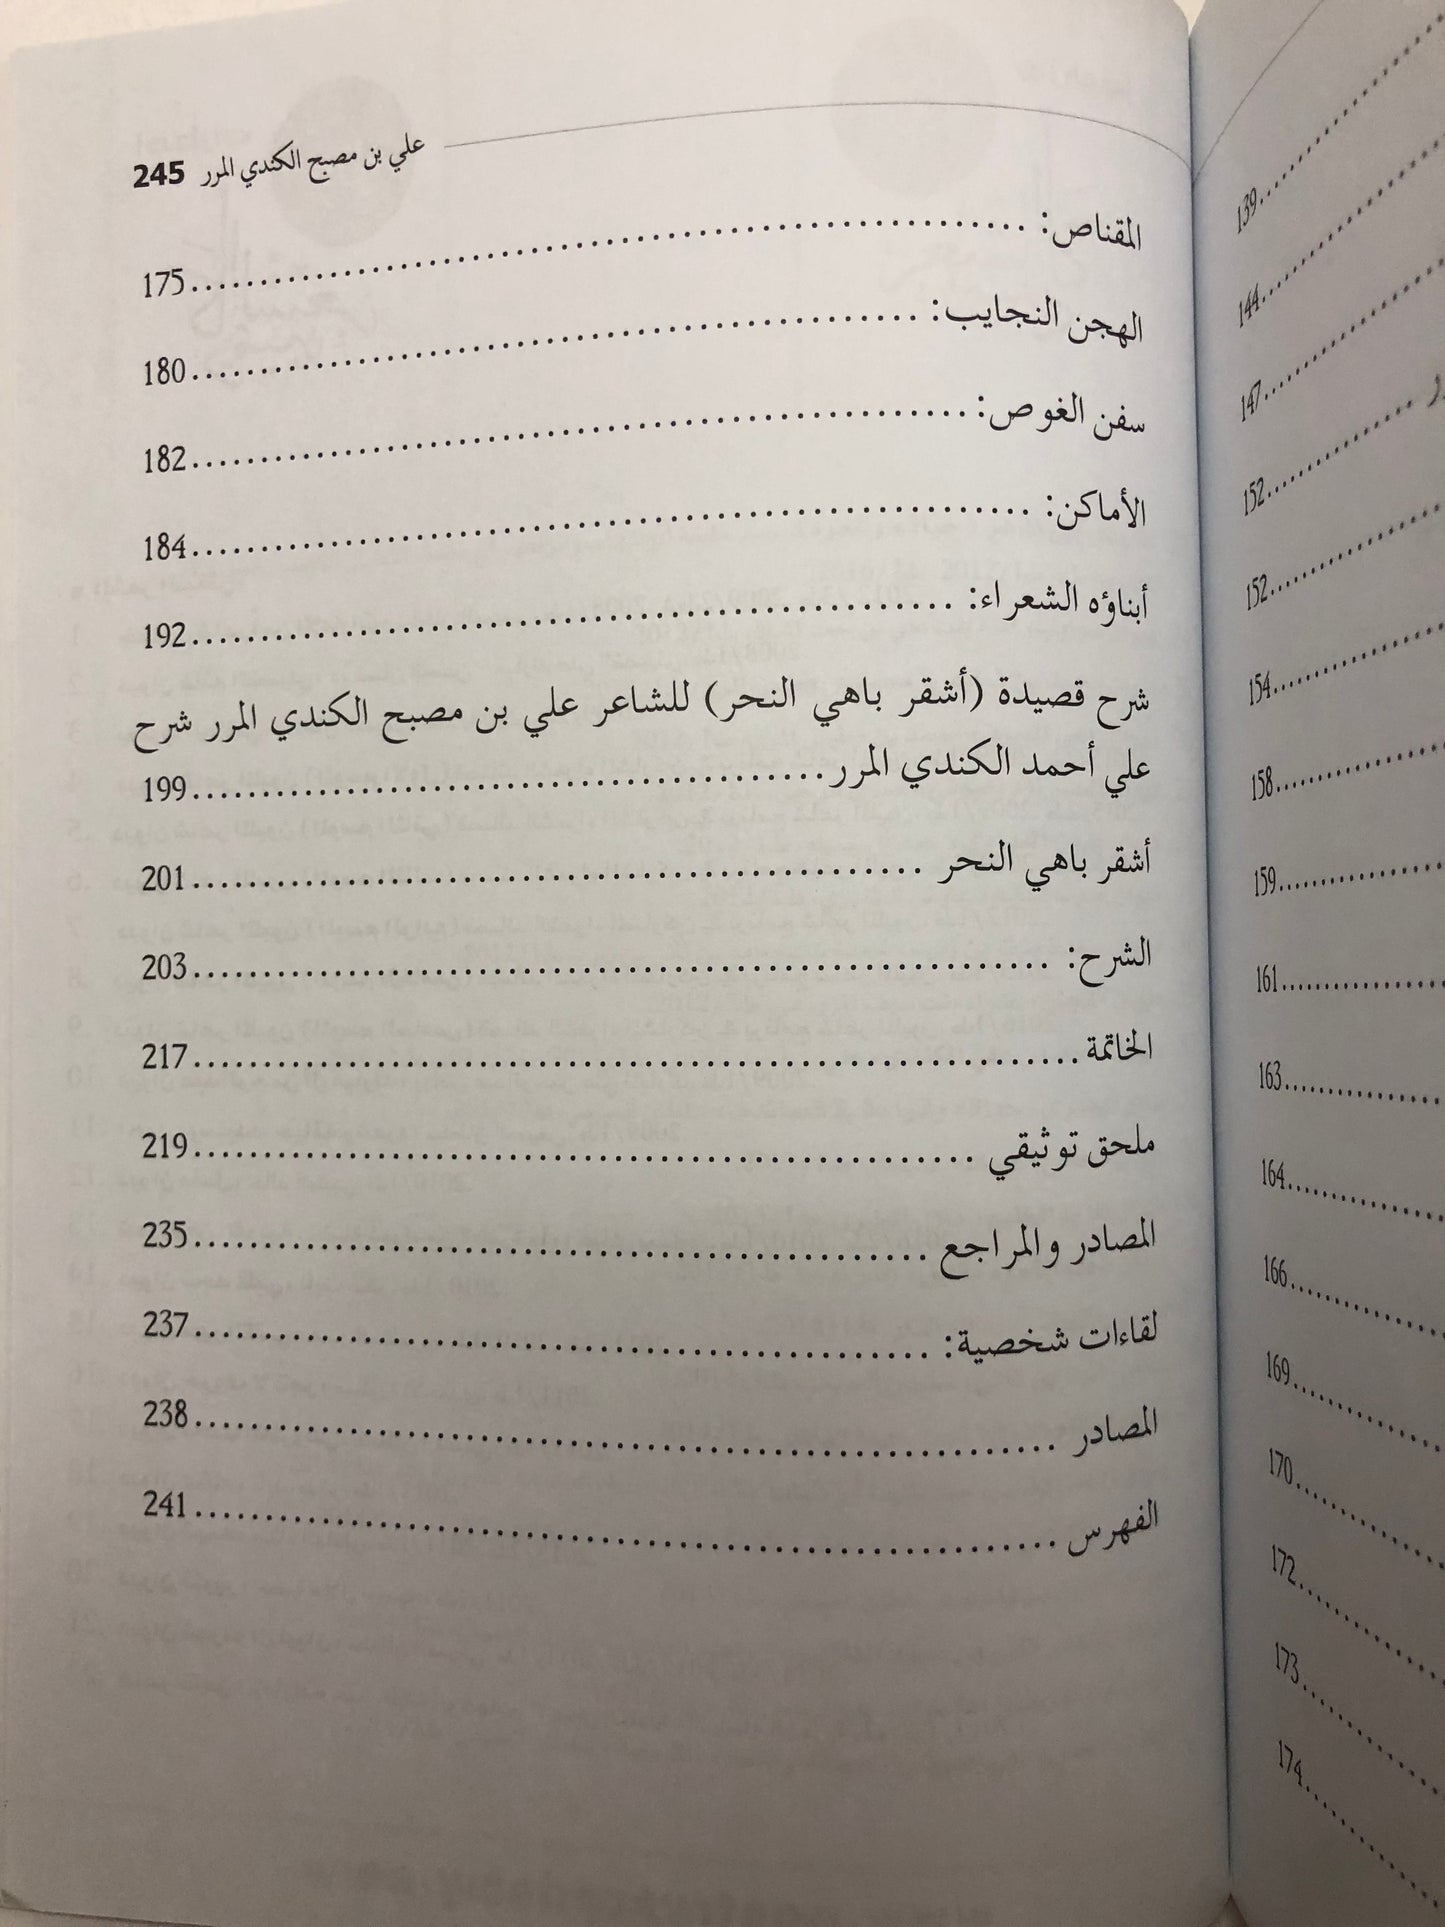 علي بن مصبح الكندي المرر 245
المقناص: 175
الهجن النجايب: 180
سفن الغوص: 182
الأماكن: 184
أبناؤه الشعراء: 192
شرح قصيدة (أشقر باهي النحر) للشاعر علي بن مصبح الكندي المرر شرح
علي أحمد الكندي المرر 199
أشقر باهي النحر 201
الشرح: 203
الخاتمة 217
ملحق توثيقي 219
المصادر والمراجع 235
لقاءات شخصية: 237
المصادر 238
الفهرس 241
139
144
147
152
152
154
158
159
161
163
164
166
169
170
172
173
174